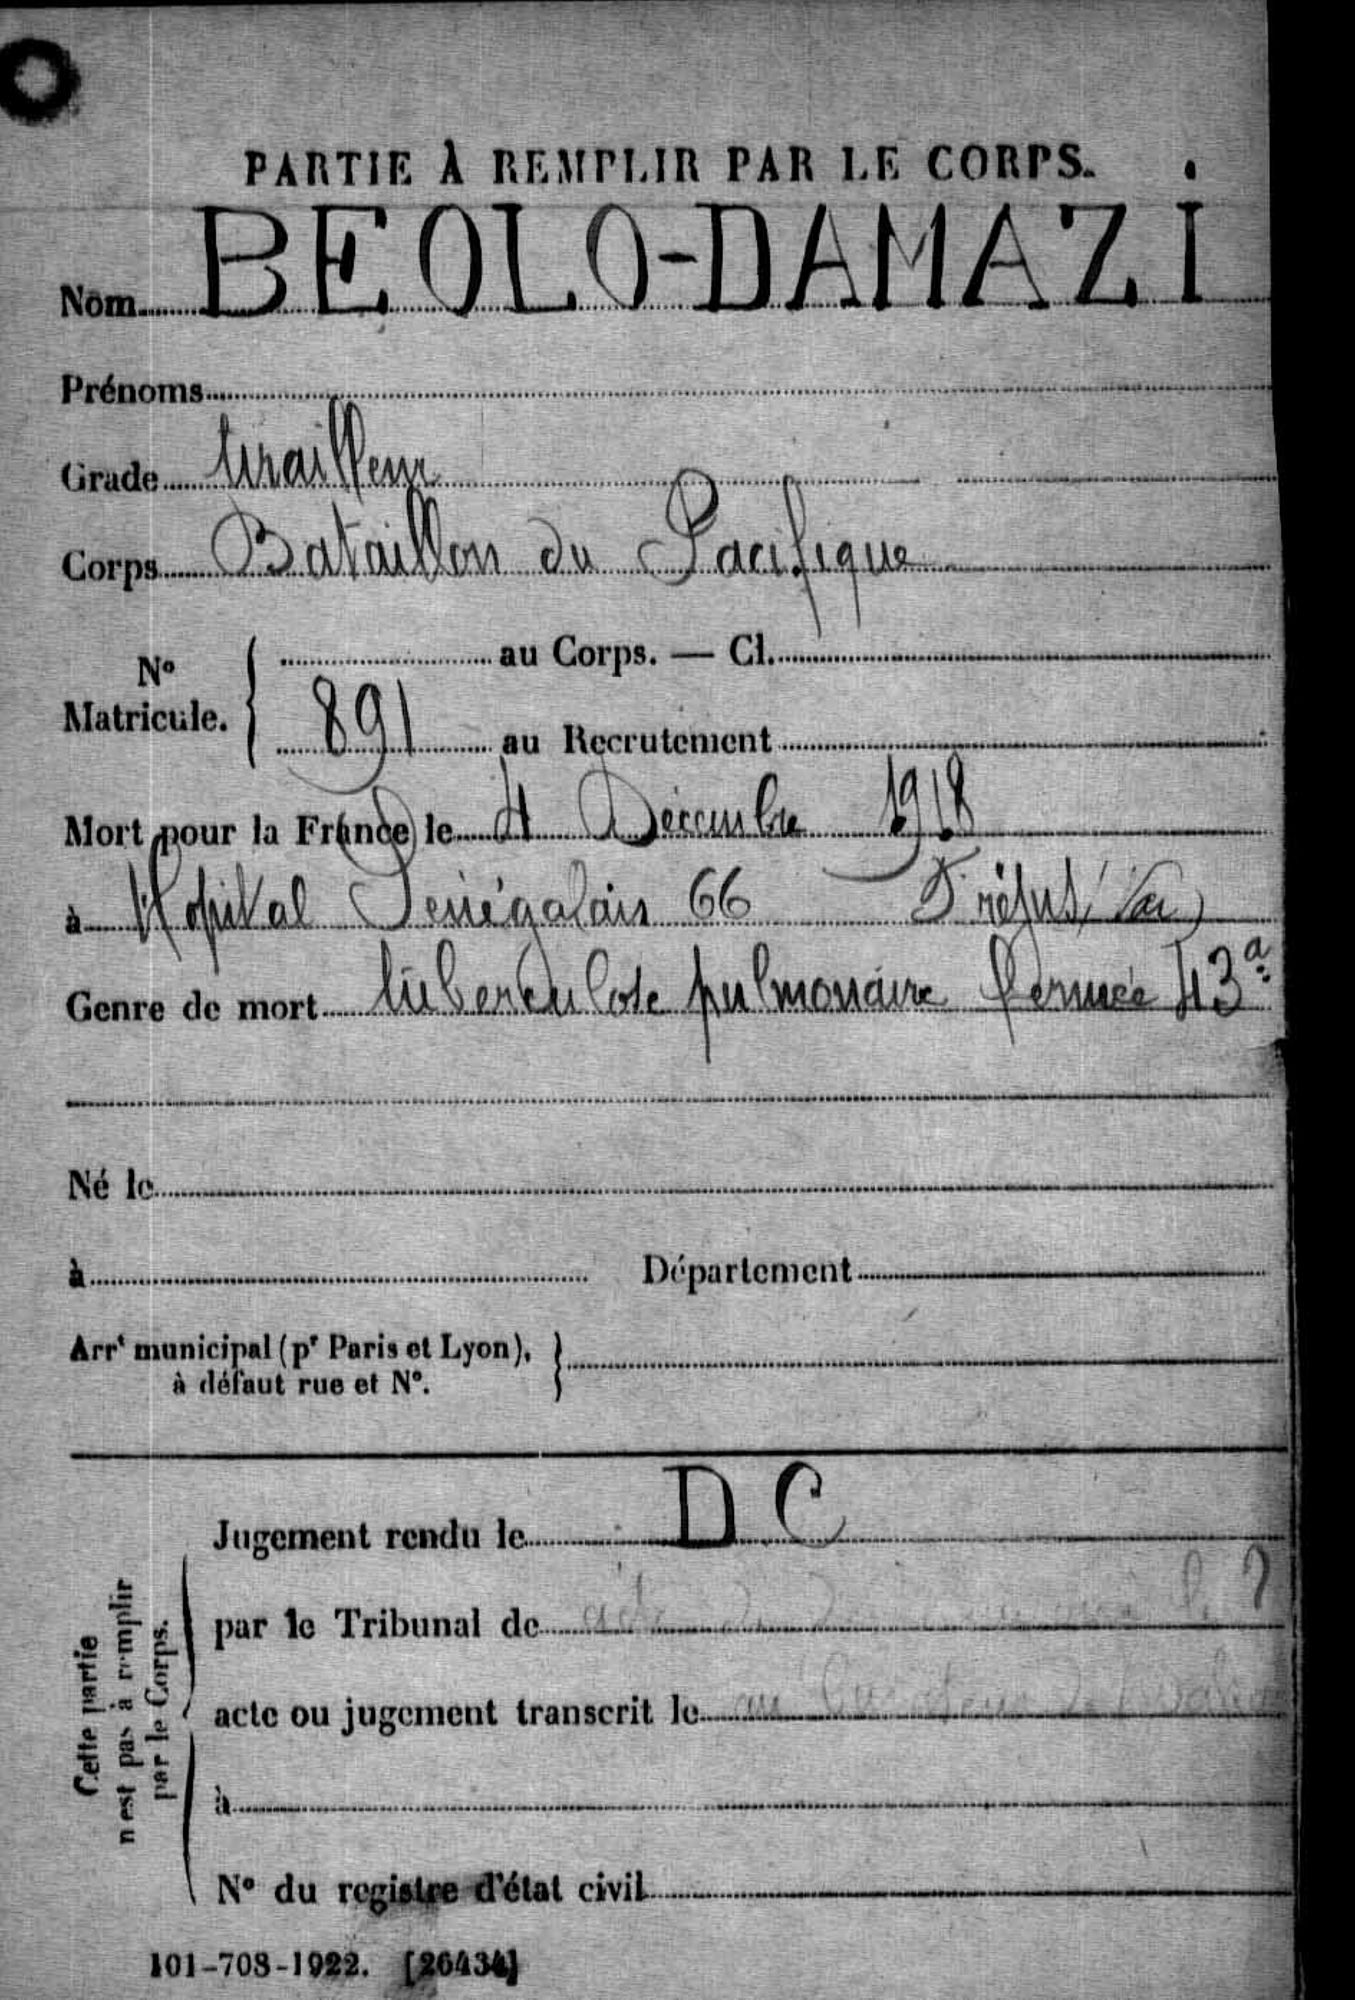 PARTIE À REMPLIR PAR LE CORPS.
Nom BEOLO-DAMAZI
Prénoms
Grade tirailleur
Corps Bataillon du Pacifique
N° Matricule. { au Corps. — Cl.
891 au Recrutement
Mort pour la France le 4 Décembre 1918
à Hopital Senégalais 66 Fréjus (Var)
Genre de mort tuberculose pulmonaire fermée 43a
Né le
à Département
Arrt municipal (pr Paris et Lyon), à défaut rue et N°. }
DC
Jugement rendu le
par le Tribunal de
acte ou jugement transcrit le
à
N° du registre d'état civil
Cette partie n'est pas à remplir par le Corps.
101-708-1922. [26434]